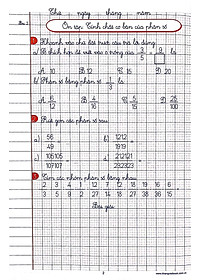 Thứ ngày tháng năm
Bài 1
Ôn tập: Tính chất cơ bản của phân số
1 Khoanh vào chữ đặt trước câu trả lời đúng.
a) Số thích hợp để viết vào ô trống của 3/5 = 9/□ là
A. 10 B. 12 C. 15 D. 20
b) Phân số bằng phân số 1/3 là
A. 6/12 B. 4/16 C. 5/15 D. 25/100
2 Rút gọn các phân số sau
a) 56/49 b) 1212/1919
c) 107107/105105 d) 212121/232323
3 Tìm các nhóm phân số bằng nhau
2 3 4 1 12 7 12 18 6
3 5 9 2 27 14 18 38 15
Bài giải
2